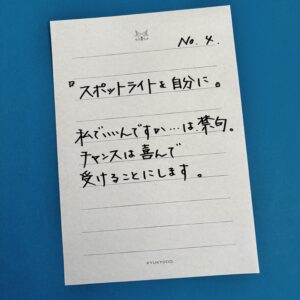 No. 4.
『スポットライトを自分に。
私でいいんですか…は禁句。
チャンスは喜んで
受けることにします。
KYUKYODO